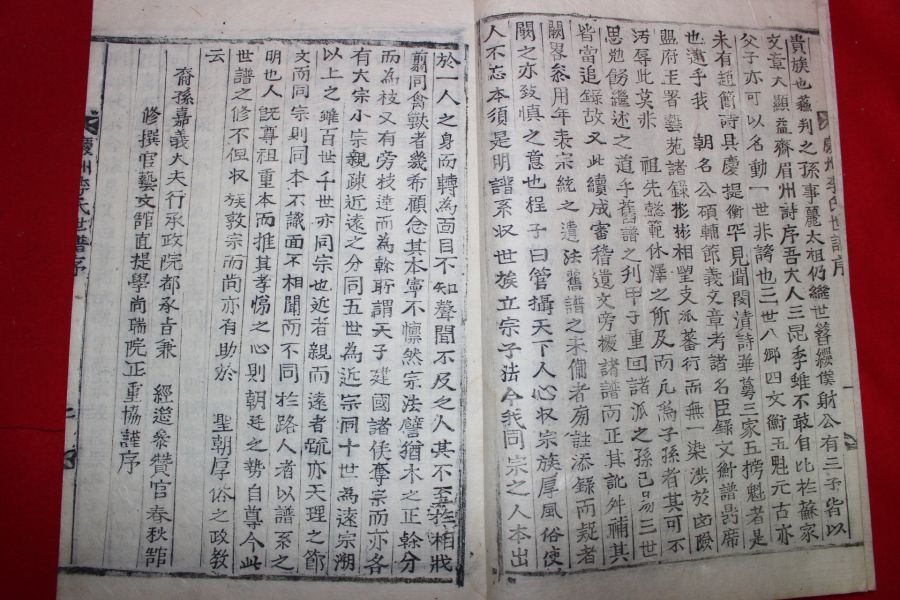 貴族也蘓判之孫事麗太祖仍繼世簪纓僕射公有三子皆以
文章大顯益齊眉州詩序吾大人三昆季雖不敢自比於蘇家
父子亦可以名動一世非謗也三世八鄉四文衡五魁元古亦
未有趙簡詩具慶提衡罕見聞閔漬詩華萼三家五榜魁者是
也遠乎我 朝名公碩輔節義文章考諸名臣錄文献譜
盟府王署藝苑諸錄彬彬相望支派蕃行而無一染洪於凶賊
汚辱此莫非 祖先懿範休澤之所及而凡為子孫者其可不
思勉飭繼述之道乎舊譜之刋甲子重回諸派之孫已三世
皆當追録故又此續成審稽遺文旁掇諸譜而正其訛舛補其
闕畧叅用年表宗統之遺法舊譜之未備者旁註添録而疑者
闕之亦致慎之意也程子曰管攝天下人心収宗族厚風俗使
人不忘本須是明譜系収世族立宗子法今我同宗之人本出
慶州李氏世譜序
於一人之身而轉為面目不知聲聞不反之人其不至於相戕
剪同禽獸者幾希顧念其本寧不懍然宗法譬猶木之正幹分
而為枝又有旁枝達而為幹所謂天子建國諸侯奪宗而亦各
有大宗小宗親疎近遠之分同五世為近宗同十世為遠宗溯
以上之雖百世千世亦同宗也近者親而遠者䟽亦天理之節
文而同宗則同本不識面不相聞而不同於路人者以譜系之
明也人旣尊祖重本而推其孝悌之心則朝廷之勢自尊今此
世譜之修不但収族敦宗而尚亦有助於 聖朝厚俗之政教
云
裔孫嘉義大夫行承政院都承旨兼 經筵叅贊官春秋舘
修撰官藝文舘直提學尚瑞院正重協謹序
慶州李氏世譜序
二